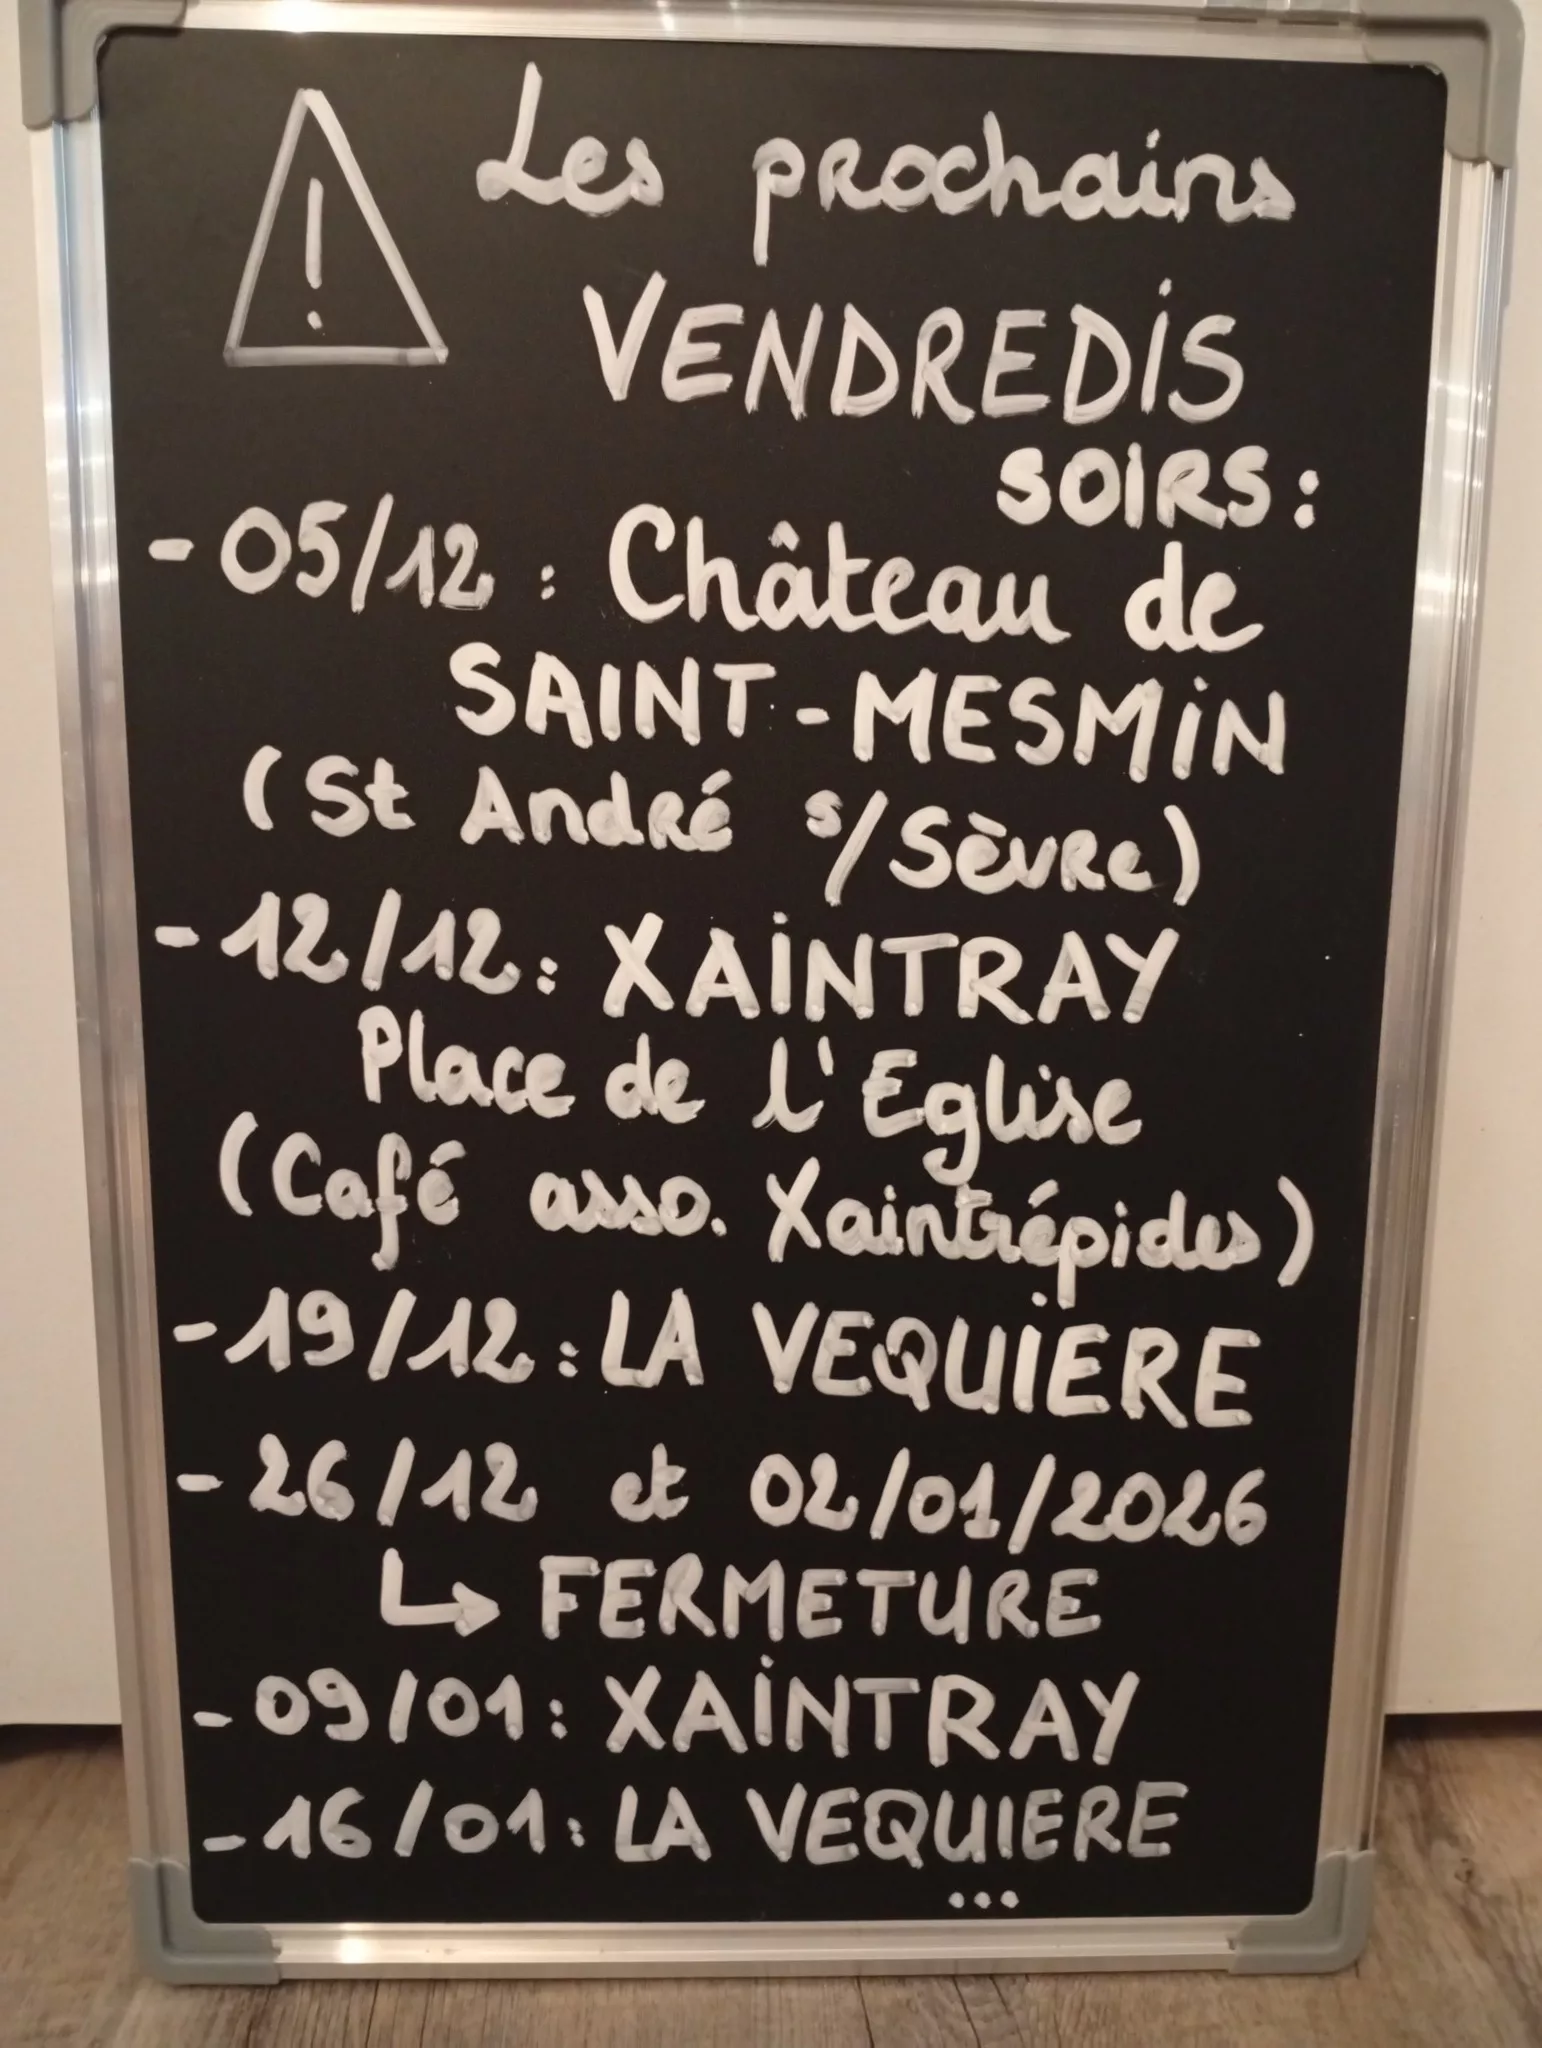 Les prochains
VENDREDIS
SOIRS :
- 05/12 : Château de
SAINT-MESMIN
(St André s/Sèvre)
- 12/12 : XAINTRAY
Place de l'Eglise
(Café asso. Xaintrépides)
- 19/12 : LA VEQUIERE
- 26/12 et 02/01/2026
↳ FERMETURE
- 09/01 : XAINTRAY
- 16/01 : LA VEQUIERE
...